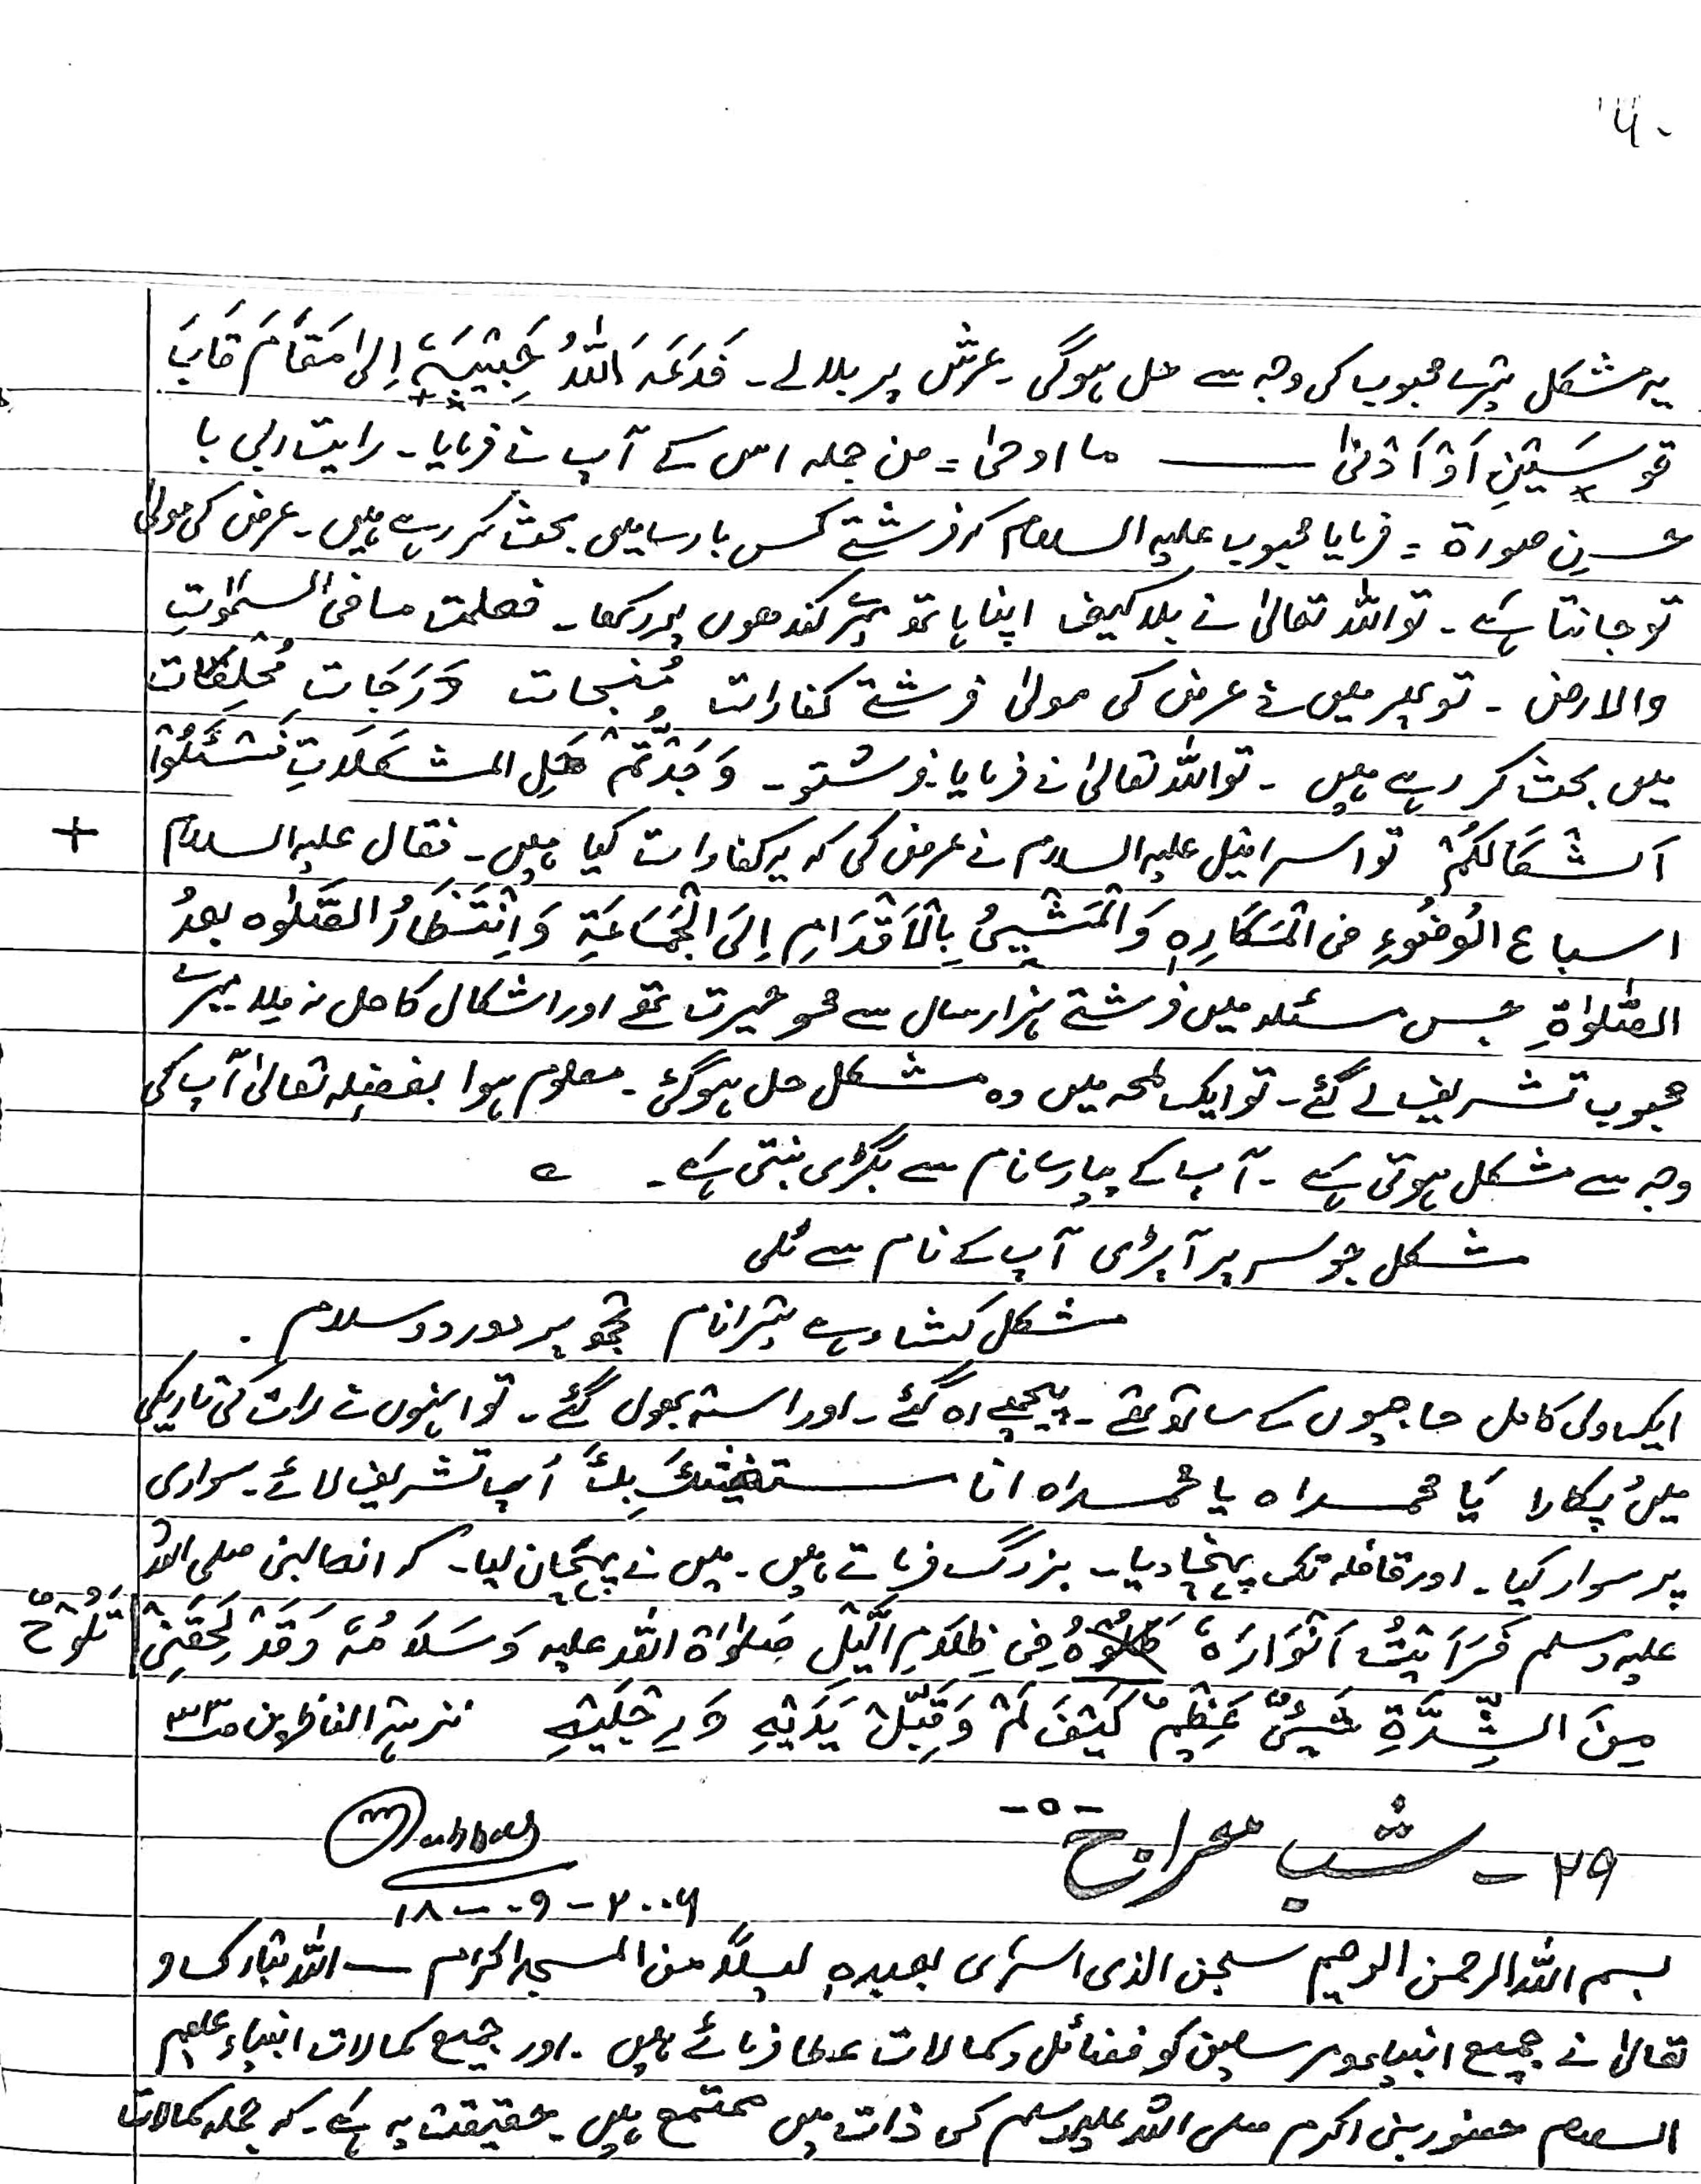 ۶۰
یہ مشکل تیرے محبوب کی وجہ سے حل ہوگی ۔ عرش پر بلالے ۔ فَدَعَہَ اللّٰہُ حَبِیْبَہٗ اِلیٰ مَقَامَ قَابَ
قوسَیْنِ اَوْ اَدْنیٰ ــــ ما اوحیٰ = من جملہ اس کے آپ نے فرمایا ۔ رایت ربی با
حسنِ صورۃ = فرمایا محبوب علیہ السلام کہ فرشتے کس بارے میں بحث کر رہے ہیں ۔ عرض کی مولیٰ
تو جانتا ہے ۔ تو اللہ تعالیٰ نے بلا کیف اپنا ہاتھ میرے کندھوں پر رکھا ۔ فعلمت ما فی السمٰوٰتِ
والارض ۔ تو پھر میں نے عرض کی مولیٰ فرشتے کفارات مُنجیات وَدَرَجَات مُھْلِکَات
میں بحث کر رہے ہیں ۔ تو اللہ تعالیٰ نے فرمایا فرشتو ۔ وَجَدْتُّمْ حَلِ المشکلاتِ فَسْئَلُوْا
اَشْکَالَکُمْ تو اسرافیل علیہ السلام نے عرض کی کہ یہ کفارات کیا ہیں ۔ فقال علیہ السلام +
اسباغ الْوُضُوءِ فی الْمَکَارِہِ وَالْمَشْیُ بِالْاَقْدَامِ اِلَی الْجَمَاعَۃِ وَاِنْتَظَارُ الصَّلٰوہ بعدُ
الصَّلٰواۃِ جس مسئلہ میں فرشتے ہزار سال سے محو حیرت تھے اور اشکال کا حل نہ ملا میرے
محبوب تشریف لے گئے ۔ تو ایک لمحہ میں وہ مشکل حل ہوگئی ۔ معلوم ہوا بفضلہ تعالیٰ آپ کی
وجہ سے مشکل ہوتی ہے ۔ آپ کے پیارے نام سے بگڑی بنتی ہے ۔ ے
مشکل جو سر پر آپڑی آپ کے نام سے ٹلی
مشکل کشاء ہے تیرا نام تجھ پر دورد و سلام .
ایک ولی کامل حاجیوں کے ساتھ تھے ۔ پیچھے رہ گئے ۔ اور راستہ بھول گئے ۔ تو انہوں نے رات کی تاریکی
میں پکارا یَا محمداہ یا محمداہ انا مستغیثُ بِكَ آپ تشریف لائے ۔ سواری
پر سوار کیا ۔ اور قافلہ تک پہنچا دیا ۔ بزرگ فرماتے ہیں ۔ میں نے پہچان لیا ۔ کہ انہ النبی صلی اللہ
علیہ وسلم فَرَاَیْتُ اَنْوَارَہٗ تَلُوْحُ فِی ظِلَامِ الَّیْلِ صلواۃ اللہ علیہ وَسَلَامُہٗ وَقَدْ لَحِقَنِیْ
مِنَ الشِّدَّۃِ شَیْیٌٔ عَظِیْمٌ کَیْفَ لَمْ وَقَبِّلْ یَدَیْہِ وَرِجْلَیْہِ نزہۃ الناظرین ص۳۳
۲۹ ــ شب معراج -ه-
۱۸ - ۹ - ۲۰۰۶
بسم اللہ الرحمن الرحیم سبحن الذی اسرٰی بعبدہٖ لیلًا من المسجد الحرام ــ اللہ تبارک و
تعالیٰ نے جمیع انبیاء و مرسلین کو فضائل و کمالات عطا فرمائے ہیں ۔ اور جمیع کمالات انبیاء علیہم
السلام حضور نبی اکرم صلی اللہ علیہ وسلم کی ذات میں مجتمع ہیں ۔ حقیقت یہ ہے ۔ کہ جملہ کمالات